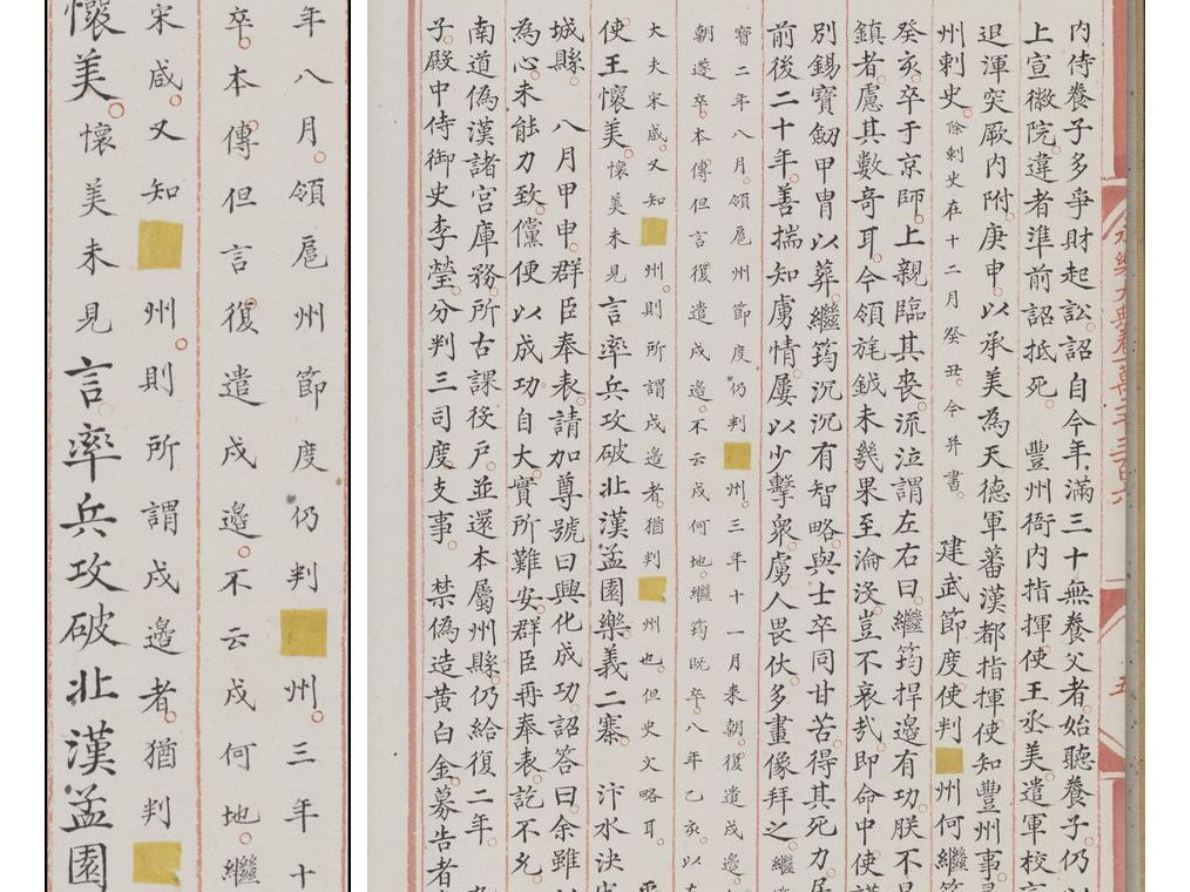 永樂大典卷一萬二千三百六
五
内侍養子多爭財起訟詔自今年滿三十無養父者始聽養子仍
上宣徽院違者準前詔抵死 豐州衙内指揮使王丞美遣軍校
退渾突厥内附庚申以承美為天德軍蕃漢都指揮使知豐州事
州刺史除刺史在十二月癸丑今并書 建武節度使判 州何繼筠
癸亥卒于京師上親臨其喪流泣謂左右曰繼筠捍邊有功朕不
鎮者慮其數奇耳今領旄鉞未幾果至淪沒豈不哀哉即命中使
别錫寶劒甲胄以葬繼筠沉沉有智略與士卒同甘苦得其死力居
前後二十年善揣知虜情屢以少擊衆虜人畏伏多畫像拜之繼
寶二年八月領扈州節度仍判 州三年十一月来朝復遣戍邊
朝遂卒本傳但言復遣戍邊不云戍何地繼筠既卒八年乙亥以
大夫宋咸又知 州則所謂戍邊者猶判 州也但史文略耳
使王懷美懷美未見言率兵攻破北漢孟園樂義二寨 汴水決
城縣 八月甲申群臣奉表請加尊號曰興化成功詔答曰余雖
為心未能力致儻便以成功自大實所難安群臣再奉表訖不允
南道偽漢諸宫庫務所古課後户並還本屬州縣仍給復二年
子殿中侍御史李瑩分判三司度支事 禁偽造黄白金募告者
年八月領扈州節度仍判 州三年十
卒本傳但言復遣戍邊不云戍何地繼
宋咸又知 州則所謂戍邊者猶判
懷美懷美未見言率兵攻破北漢孟園